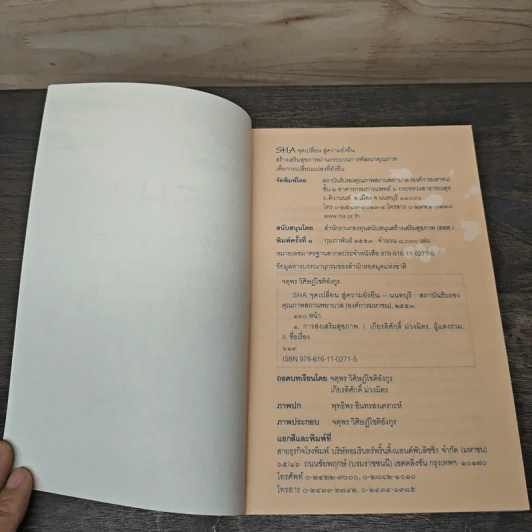 SHA จุดเปลี่ยน สู่ความยั่งยืน
สร้างเสริมสุขภาพผ่านกระบวนการพัฒนาคุณภาพ
เพื่อการเปลี่ยนแปลงที่ยั่งยืน
จัดพิมพ์โดย สถาบันรับรองคุณภาพสถานพยาบาล (องค์การมหาชน)
ชั้น ๒ อาคารกรมการแพทย์ ๖ กระทรวงสาธารณสุข
ถ.ติวานนท์ อ.เมือง จ.นนทบุรี ๑๑๐๐๐
www.ha.or.th
สนับสนุนโดย สำนักงานกองทุนสนับสนุนสร้างเสริมสุขภาพ (สสส.)
พิมพ์ครั้งที่ ๑ กุมภาพันธ์ ๒๕๕๓ จำนวน ๘,๐๐๐ เล่ม
หมายเลขมาตรฐานสากลประจำหนังสือ 978-616-11-0271-5
ข้อมูลทางบรรณานุกรมของสำนักหอสมุดแห่งชาติ
จตุพร วิศิษฏ์โชติอังกูร
SHA จุดเปลี่ยน สู่ความยั่งยืน.-- นนทบุรี : สถาบันรับรอง
คุณภาพสถานพยาบาล (องค์การมหาชน), ๒๕๕๓.
๑๖๐ หน้า.
๑. การส่งเสริมสุขภาพ. I. เกียรติศักดิ์ ม่วงมิตร, ผู้แต่งร่วม.
II. ชื่อเรื่อง.
๖๑๓
ISBN 978-616-11-0271-5
ถอดบทเรียนโดย จตุพร วิศิษฏ์โชติอังกูร
เกียรติศักดิ์ ม่วงมิตร
ภาพปก พุทธิพร อินทรสงเคราะห์
ภาพประกอบ จตุพร วิศิษฏ์โชติอังกูร
แยกสีและพิมพ์ที่
สายธุรกิจโรงพิมพ์ บริษัทอมรินทร์พริ้นติ้งแอนด์พับลิชชิ่ง จำกัด (มหาชน)
๖๕/๑๖ ถนนชัยพฤกษ์ (บรมราชชนนี) เขตตลิ่งชัน กรุงเทพฯ ๑๐๑๗๐
โทรศัพท์ ๐-๒๔๒๒-๙๐๐๐, ๐-๒๘๘๒-๑๐๑๐
โทรสาร ๐-๒๔๓๓-๒๗๔๒, ๐-๒๔๓๔-๑๓๘๕